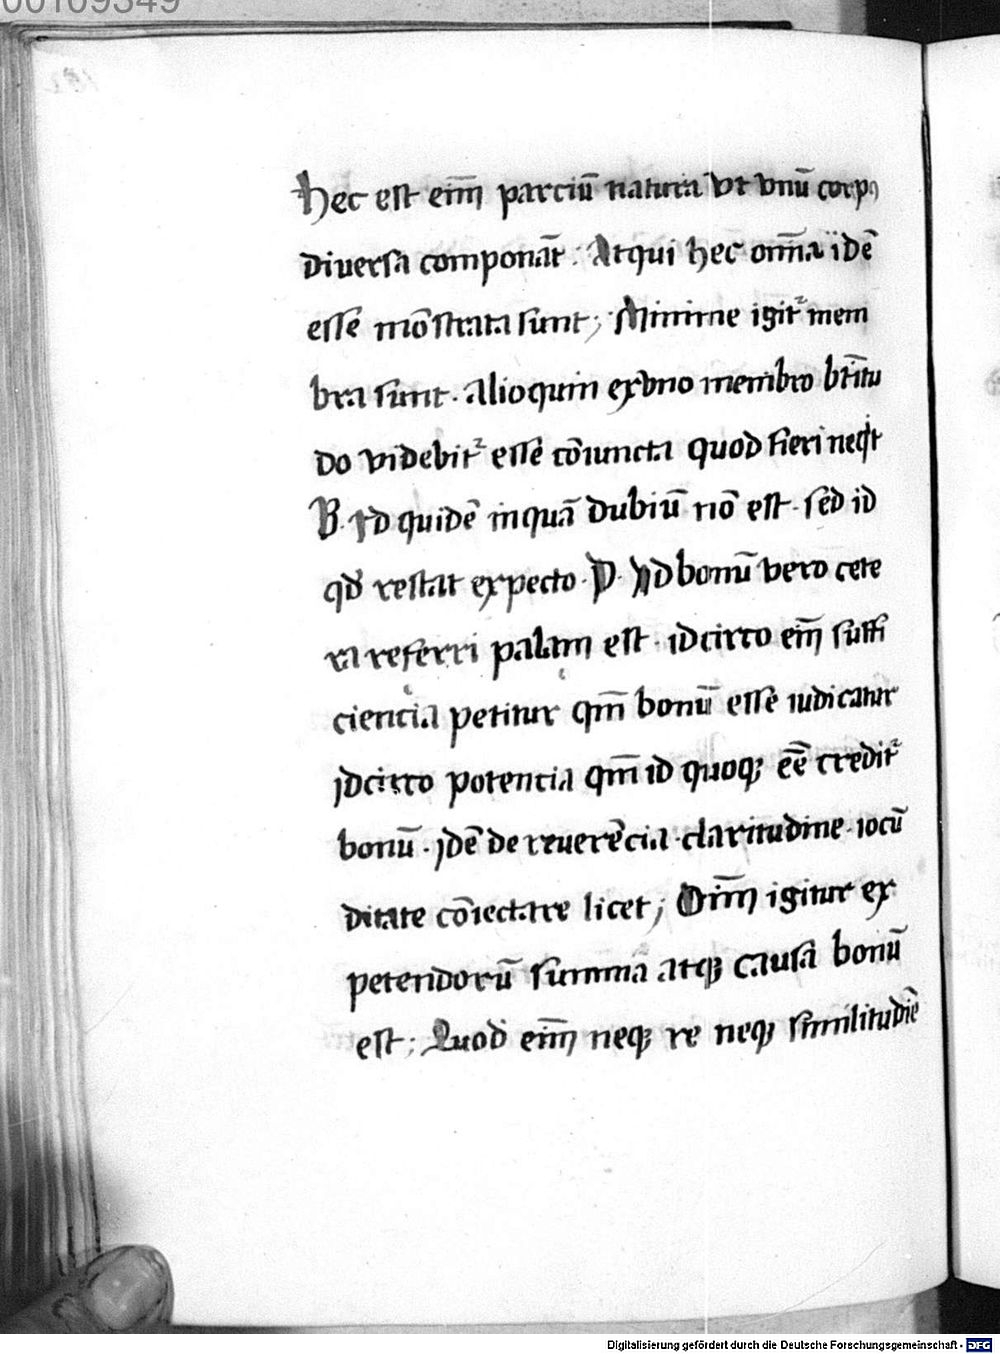 00109349
hec est eni̅m parciu̅ natura vt vnu̅ corpꝰ
diuersa compona̅t. Atqui hec om̅ia ide̅
esse mo̅strata sunt; Minime igit᷑ mem
bra sunt. alioquin ex vno membro bti̅tu
do videbit᷑ esse co̅iuncta quod fieri neqt
B. Id quide̅ inqua̅ dubiu̅ no̅ est. sed id
qd̓ restat expecto. P. Ad bonu̅ vero cete
ra referri palam est. idcirco eni̅m suffi
ciencia petitur qm̅ bonu̅ esse iudicatur
jdcirco potencia qm̅ id quoqꝫ ee̅ credit᷑
bonu̅. jde̅ de reuere̅cia. claritudine. iocu̅
ditate co̅iectare licet; Om̅im igitur ex
petendoru̅ summa atqꝫ causa bonu̅
est; Quod eni̅m neqꝫ re neqꝫ similitudi̅e
Digitalisierung gefördert durch die Deutsche Forschungsgemeinschaft - DFG